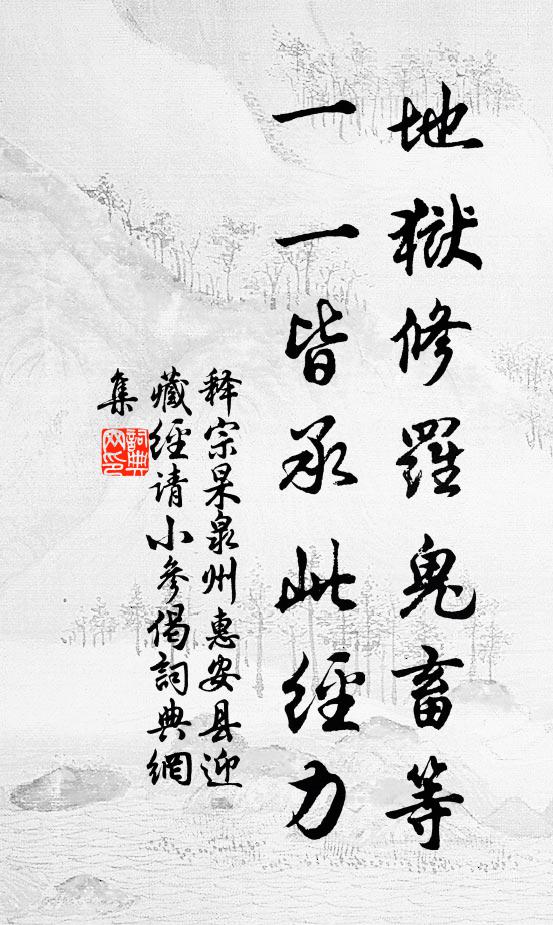 地獄修羅鬼畜等
一一皆承此經力
释宗杲泉州惠安县迎
藏經请小參偈詞典網
集
詞典
网印